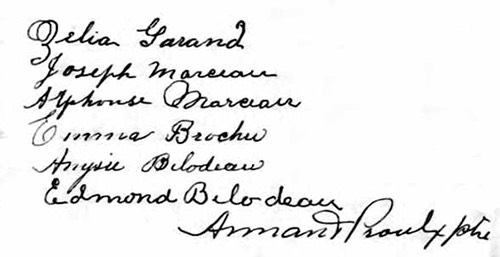 Zelia Garand
Joseph Marceau
Alphonse Marceau
Emma Brochu
Anysie Bilodeau
Edmond Bilodeau
Armand Proulx ptre